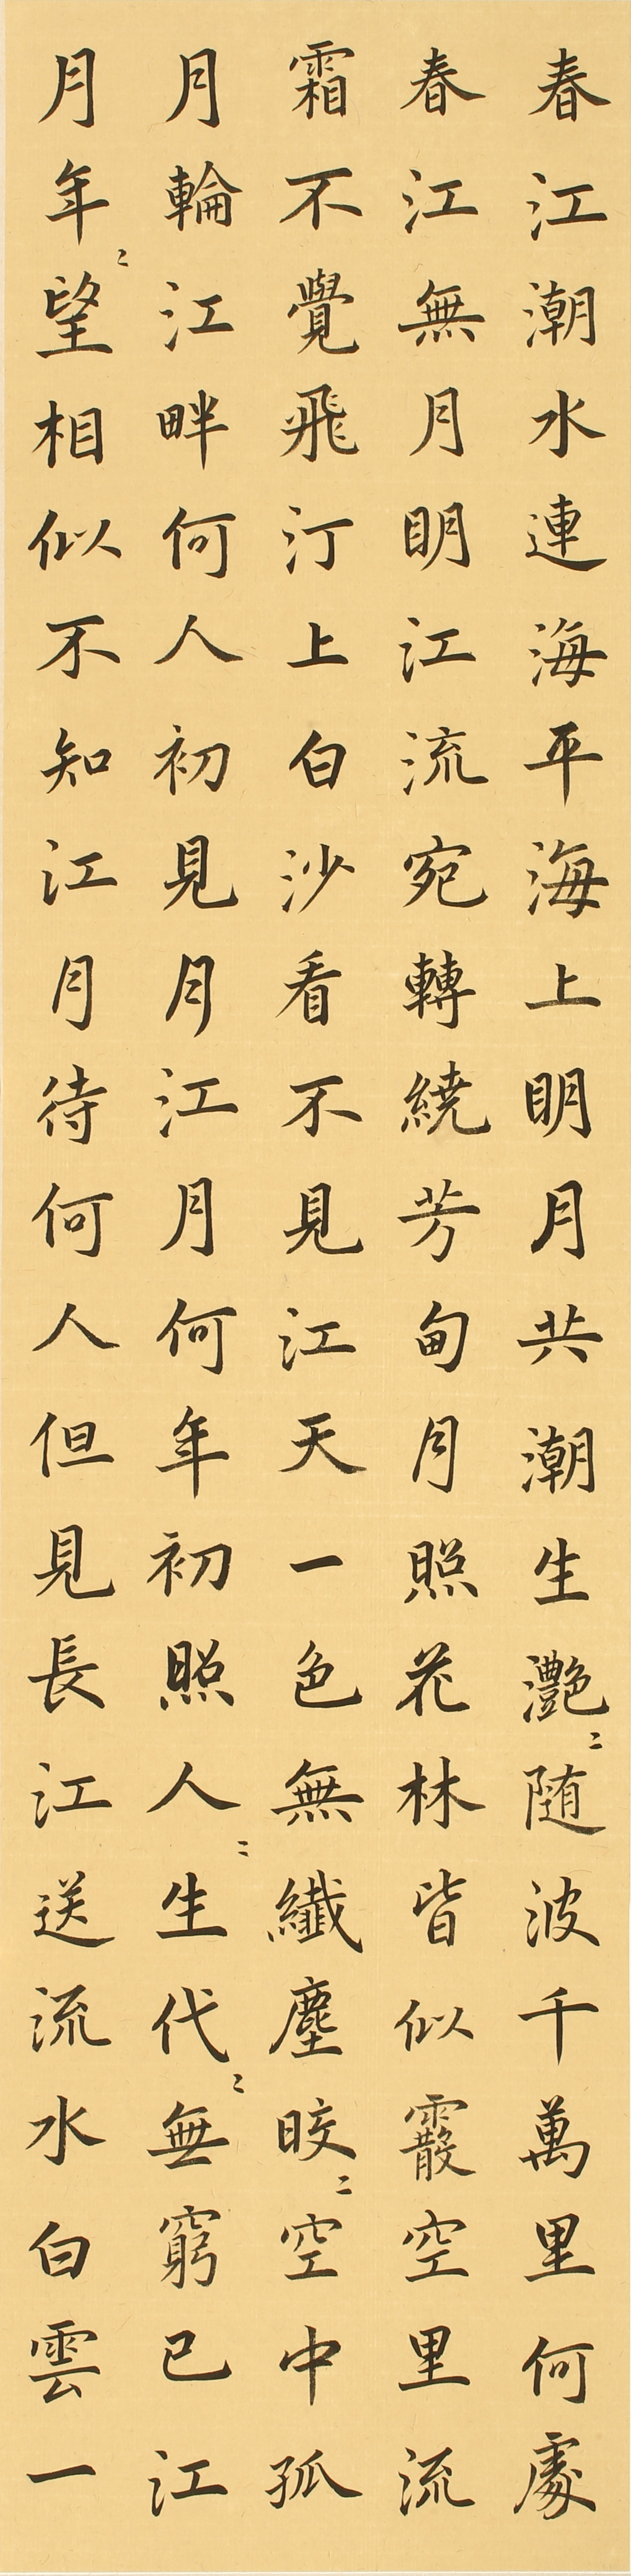 春江潮水連海平海上明月共潮生灧〻随波千萬里何處
春江無月明江流宛轉繞芳甸月照花林皆似霰空里流
霜不覺飛汀上白沙看不見江天一色無纖塵晈〻空中孤
月輪江畔何人初見月江月何年初照人〻生代〻無窮已江
月年〻望相似不知江月待何人但見長江送流水白雲一